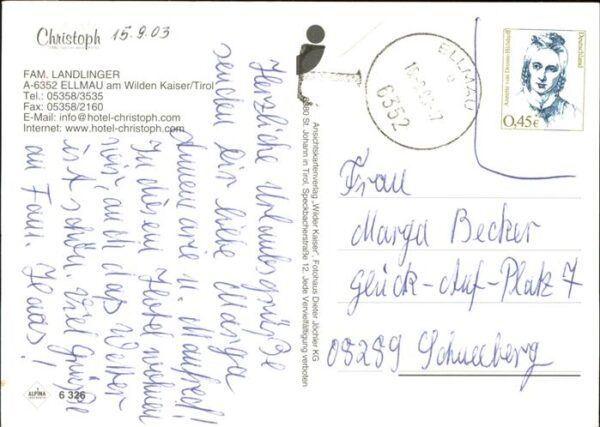 Christoph 15.9.03
FAM. LANDLINGER
A-6352 ELLMAU am Wilden Kaiser/Tirol
Tel.: 05358/3535
Fax: 05358/2160
E-Mail: info@hotel-christoph.com
Internet: www.hotel-christoph.com
Herzliche Urlaubsgrüße
senden Dir liebe Marga
Annemarie u. Manfred!
In diesem Hotel wohnen
wir, auch das Wetter
ist schön. Viel Grüße
an Fam. Haas!
ALPINA
6 326
Ansichtskartenverlag „Wilder Kaiser“, Fotohaus Dieter Jöchler KG
6380 St. Johann in Tirol, Speckbacherstraße 12, Jede Vervielfältigung verboten
ELLMAU
6352
Annette von Droste-Hülshoff
Deutschland
0,45€
Frau
Marga Becker
Glück-Auf-Platz 7
08289 Schneeberg